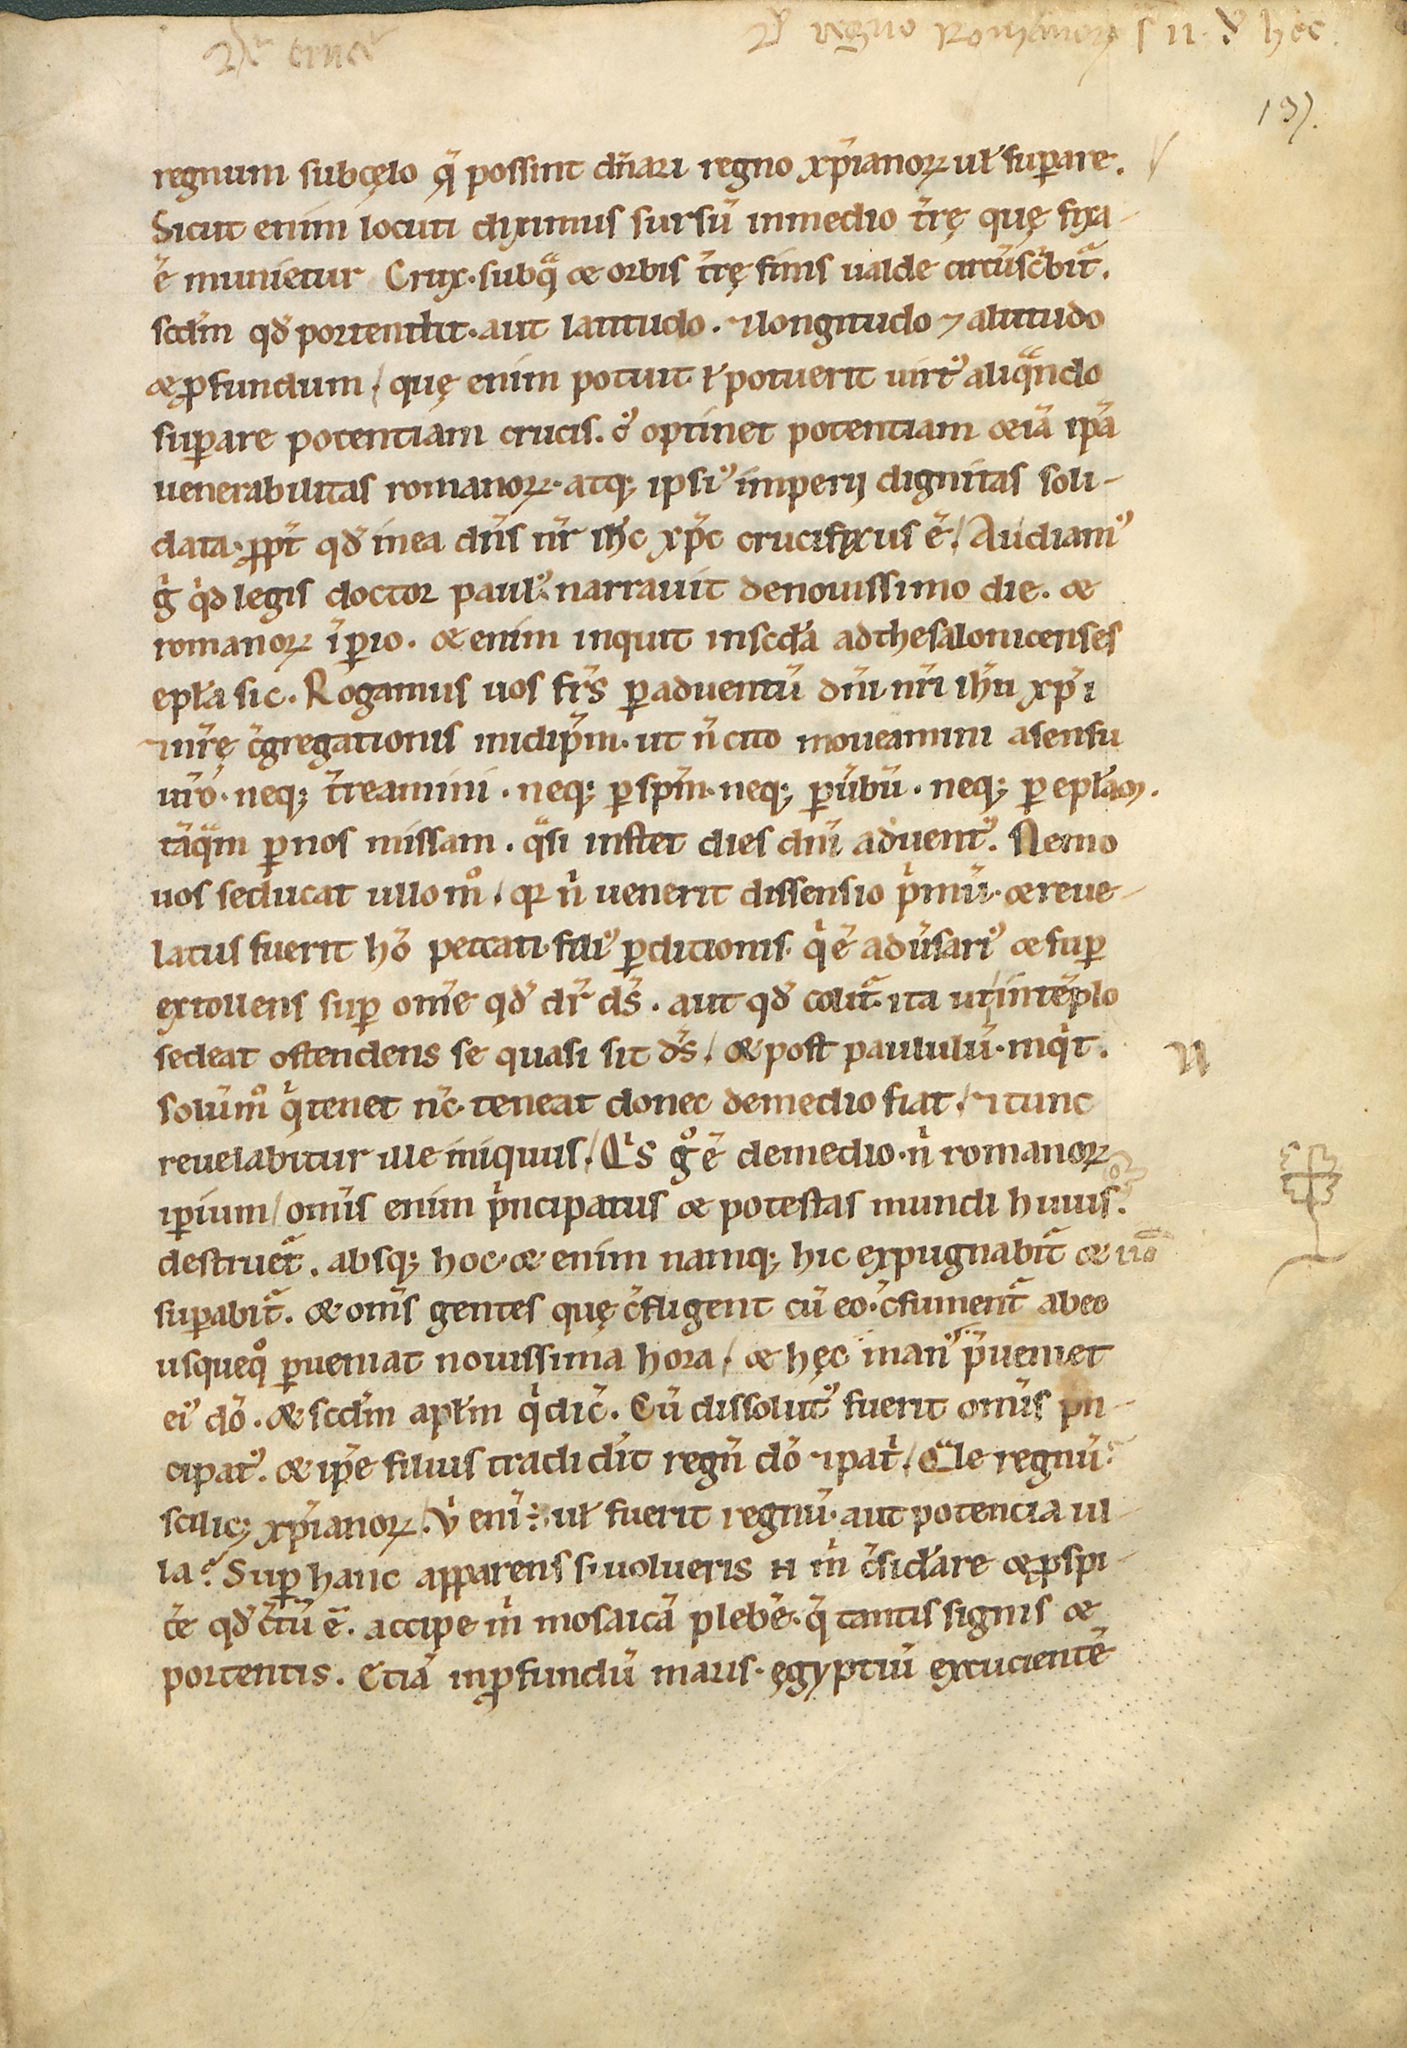 regnum subcęlo q̄ possint dn̄ari regno xp̄ianoꝝ uł suꝑare.
Sicut enim locuti diximus sursū inmedio t̄rę quę fixa
ē munietur Crux. subq̄ & orbis t̄rę finis ualde circūsc̄bit᷑.
scd̄m qd̄ portendit. aut latitudo. ⁊longitudo ⁊altitudo
&ꝓfundum / quę enim potuit ł potuerit uirt᷒ aliqͣndo
suꝑare potentiam crucis. optinet potentiam &iā ip̄a
uenerabilitas romanoꝝ. atq; ipsi᷒ imperij dignitas soli-
data. ꝓpt̄ qd̄ inea dn̄s nr̄ ih̄c xp̄c crucifixus ē / Audiam᷒
g̊ qͥd legis doctor paul᷒ narrauit denouissimo die. &
romanoꝝ īꝑio. & enim inquit inscd̄a adthesalonicenses
epła sic. Rogamus uos fr̄s ꝑaduentū dn̄i nr̄i ih̄u xp̄i
⁊nr̄ę c̄gregationis inidip̄m. ut n̄ cito moueamini asensu
ur̄o. neq; t̄reamini. neq; ꝑ sp̄m. neq; ꝑ ūbū. neq; ꝑ epłam.
tāqͣm ꝑ nos missam. qͣsi instet dies dn̄i aduent᷒. Nemo
uos seducat ullo mͦ / qꝛ nͥ uenerit dissensio pͥmū. & reue-
latus fuerit hō peccati. fili᷒ ꝑditionis. qͥ ē adūsari᷒ & suꝑ
extollens suꝑ om̄e qd̄ dr̄ ds̄. aut qd̄ colit᷑. ita ut intēplo
sedeat ostendens se quasi sit ds̄ / & post paululū. inqͥt.
solūmͦ qͥ tenet nc̄. teneat donec demedio fiat / ⁊tunc
reuelabitur ille iniquus / Qͥs gͦ ē demedio. nͥ romanoꝝ
iꝑium / om̄is enim pͥncipatus & potestas mundi huius.
destruet᷑. absq; hoc. & enim namq; hic expugnabit᷑ & nō
suꝑabit᷑. & om̄s gentes quę c̄fligent cū eo. c̄sument᷑ abeo
usquequͦ ꝑueniat nouissima hora / & hęc man᷒ p̄ueniet
ei᷒ dō. & scd̄m apłm qͥ dic̄. Cū dissolut᷒ fuerit om̄is pͥn-
cipat᷒. & ip̄e filius tradid̄it regn̄ dō ⁊patͥ / Qͣle regnū
scilic; xp̄ianoꝝ / vͥ eni᷒ uł fuerit regnū. aut potencia ul-
la. Suꝑ hanc apparens si uolueris n mͥ c̄sid̄are &ꝓspi-
c̄e qd̄ c̄tū ē. accipe mͥ mosaicā plebē. q̄ tantis signis &
portentis. Etiā inꝓfundū maris. ęgyptiū excucientē